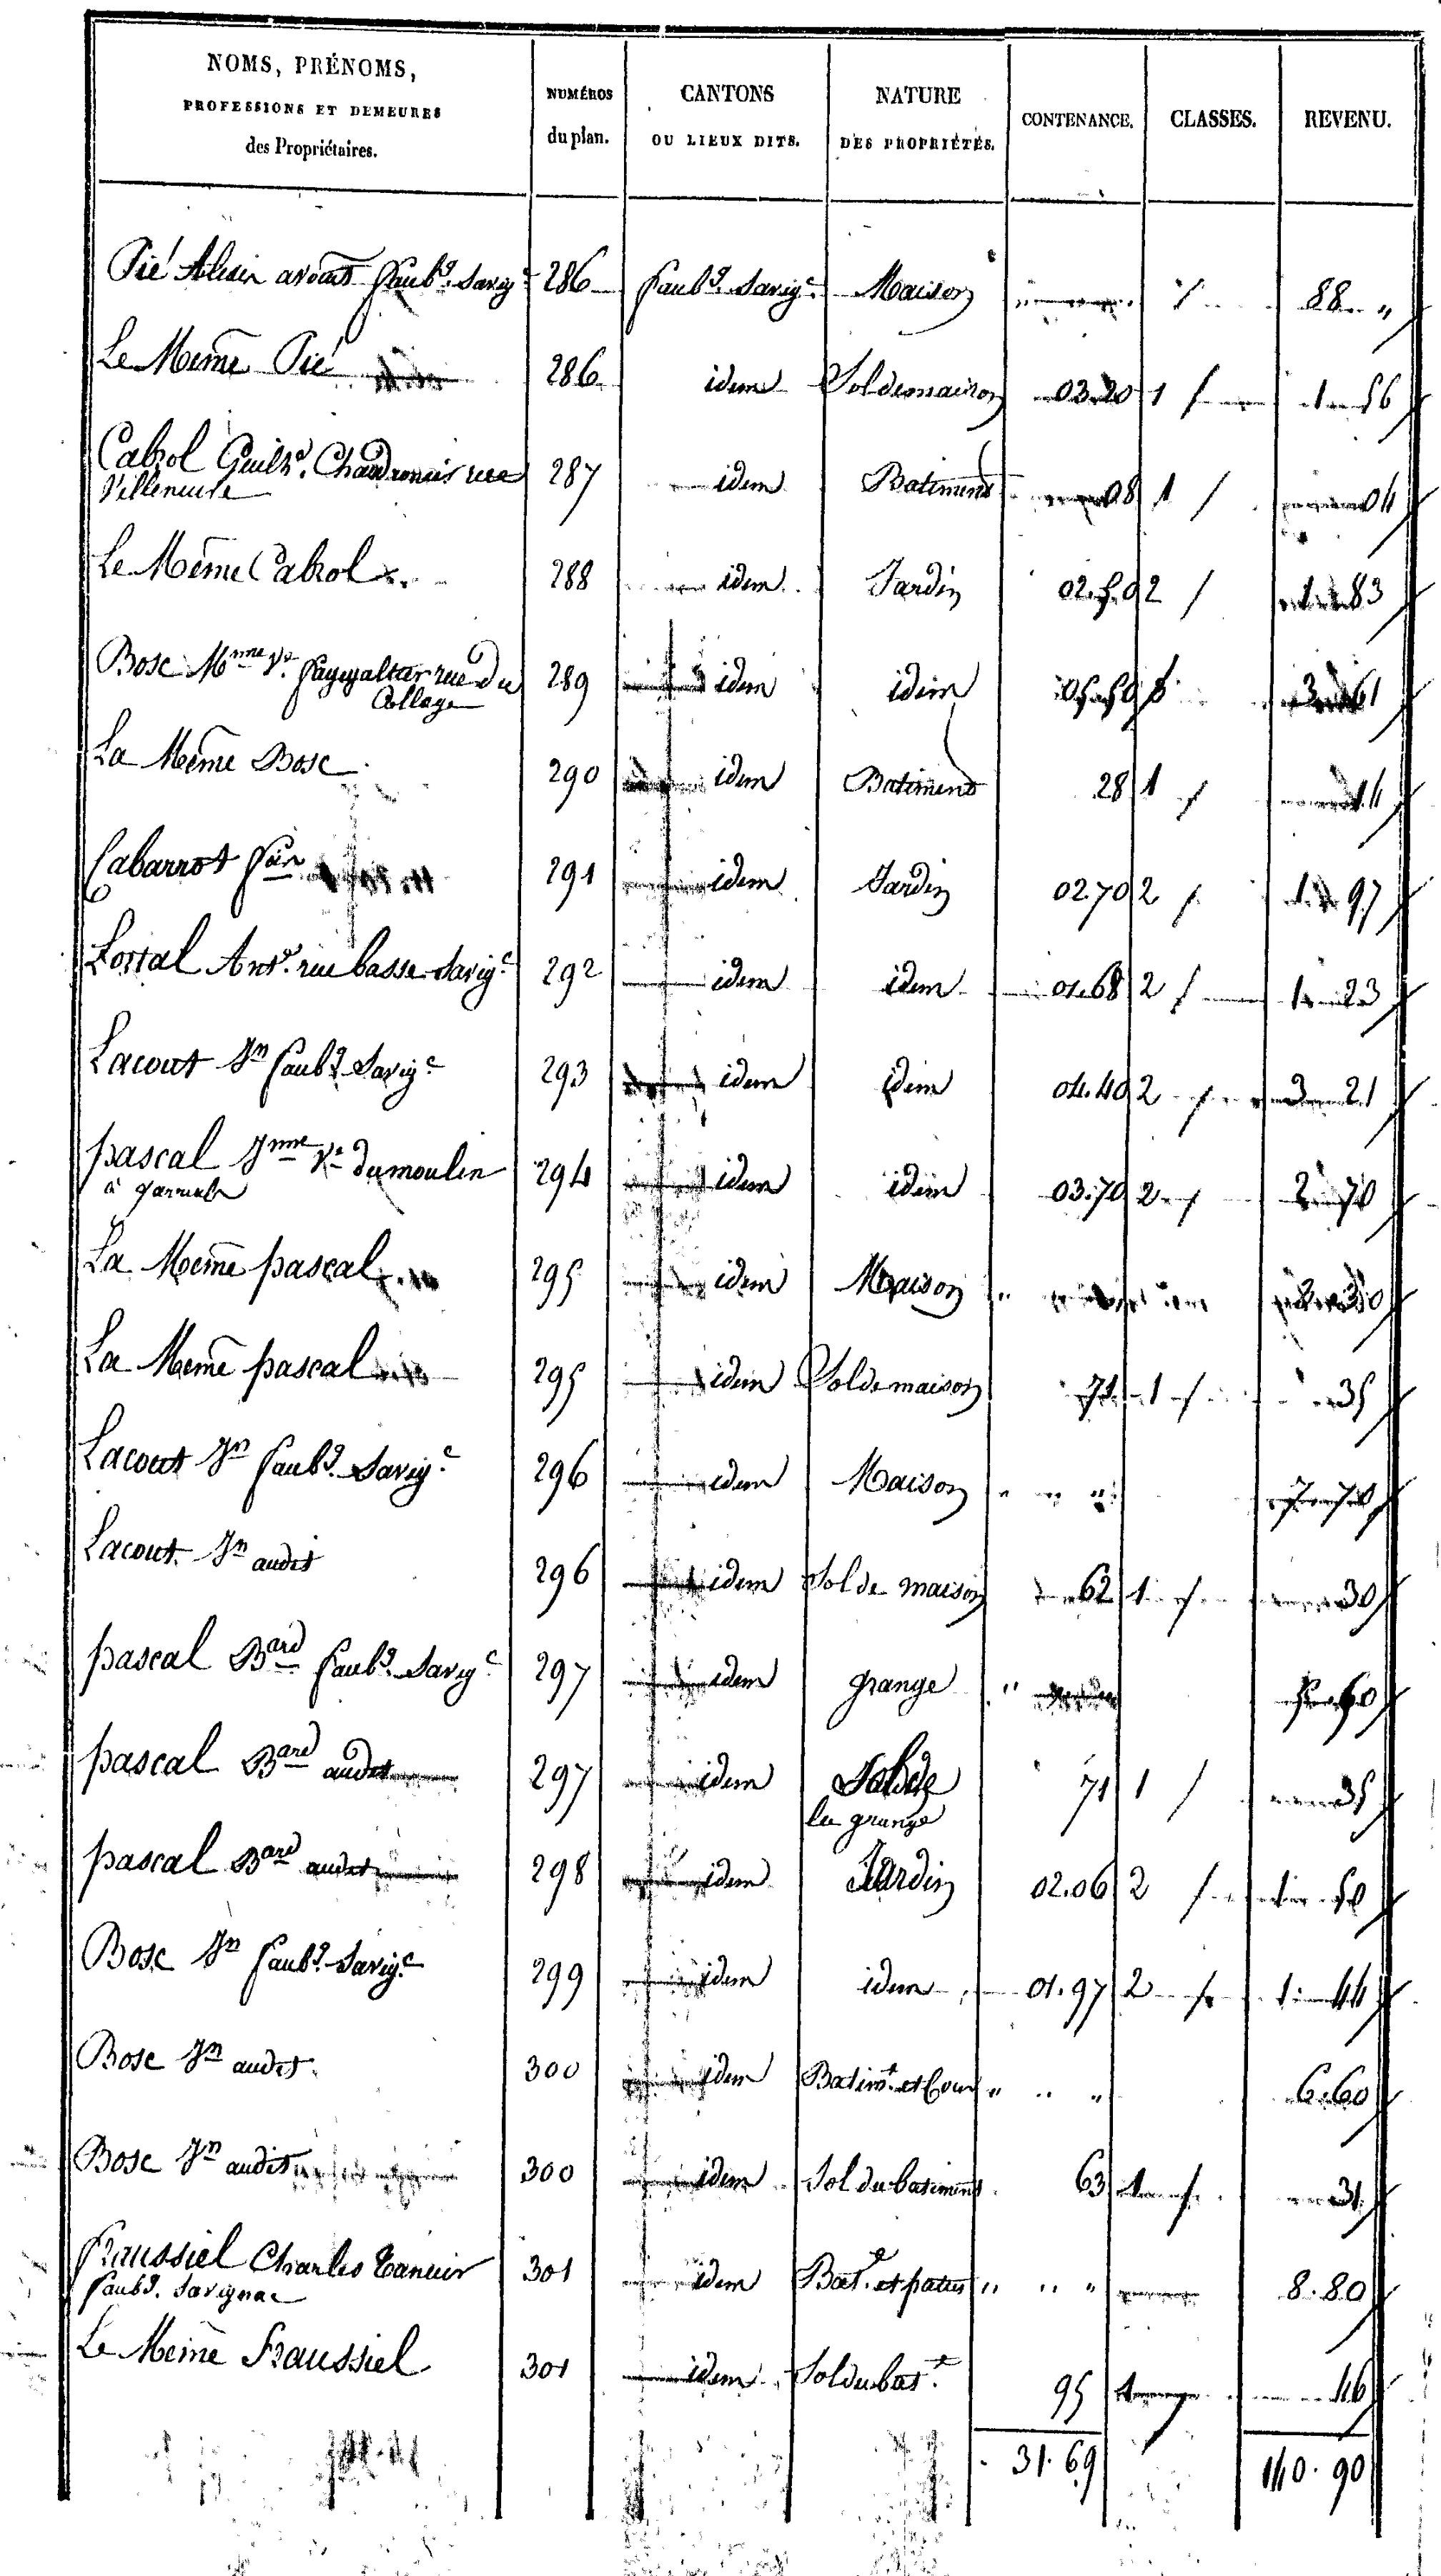 NOMS, PRÉNOMS,
PROFESSIONS ET DEMEURES
des Propriétaires.
NUMÉROS
du plan.
CANTONS
OU LIEUX DITS.
NATURE
DES PROPRIÉTÉS.
CONTENANCE.
CLASSES.
REVENU.
Pié avocat faubg. Savigc 286 faubg. Savigc Maison 88 "
Le Même Pié 286 idem Sol de maison 03.20 1 1 56
Cabrol Guilhe. Chaudronnier rue 287 idem Batiment 08 1 04
Villeneuve
Le Même Cabrol 288 idem Jardin 02.50 2 1 83
Bosc Mnne Ve. rue du 289 idem idem 3 61
Collage
La Même Bosc 290 idem Batiment 28 1 14
Cabarrot 291 idem Jardin 02.70 2 1 97
Lortal Ant. rue basse Savigc 292 idem idem 01.68 2 1 23
Lacout Jn faubg Savigc 293 idem idem 04.40 2 3 21
pascal Jnne Ve dumoulin 294 idem idem 03.70 2 2 70
à
La Même pascal 295 idem Maison " 
La Même pascal 295 idem Sol de maison 71 1 35
Lacout Jn faubg. Savigc 296 idem Maison " " " 7 70
Lacout Jn audit 296 idem Sol de maison 62 1 30
pascal Bard faubg. Savigc 297 idem grange "
pascal Bard audit 297 idem Sol de 71 1 35
la grange
pascal Bard audit 298 idem Jardin 02.06 2 1 50
Bosc Jn faubg. Savigc 299 idem idem 01.97 2 1 44
Bosc Jn audit. 300 idem Batimt. et Cour " " " 6.60
Bosc Jn audit 300 idem Sol du batiment 63 1 31
fraussiel Charles Taneur 301 idem Bat. et patus " " " 8.80
faubg. Savignac
Le Même fraussiel 301 idem Sol du bat. 95 1 46
31.69 140.90